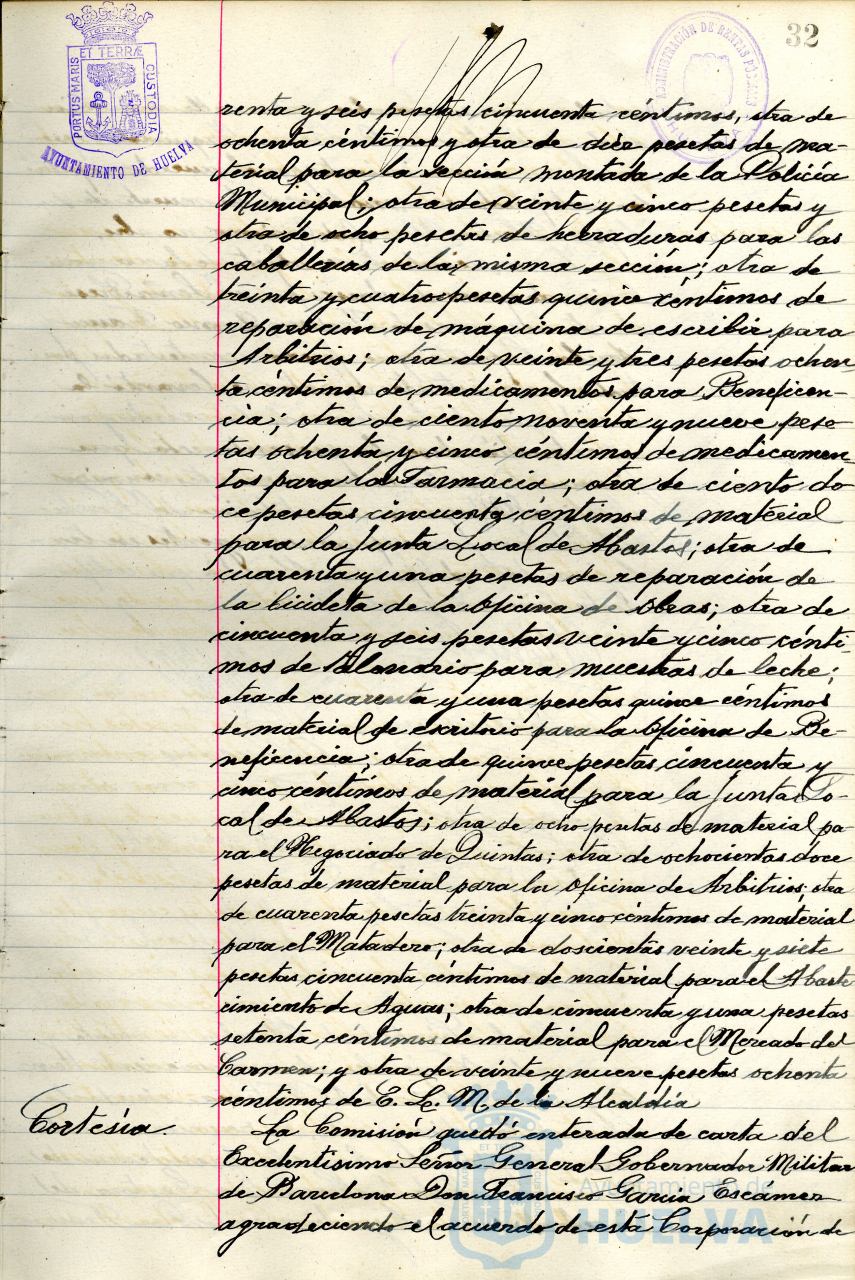 32
PORTUS MARIS
ET TERRÆ
CUSTODIA
AYUNTAMIENTO DE HUELVA
ADMINISTRACIÓN DE RENTAS PÚBLICAS
renta y seis pesetas cincuenta céntimos, otra de
ochenta céntimos y otra de diez pesetas de ma-
terial para la sección montada de la Policía
Municipal; otra de veinte y cinco pesetas y
otra de ocho pesetas de herraduras para las
caballerías de la misma sección; otra de
treinta y cuatro pesetas quince céntimos de
reparación de máquina de escribir para
Arbitrios; otra de veinte y tres pesetas ochen
ta céntimos de medicamentos para Beneficen-
cia; otra de ciento noventa y nueve pese
tas ochenta y cinco céntimos de medicamen
tos para la Farmacia; otra de ciento do
ce pesetas cincuenta céntimos de material
para la Junta Local de Abastos; otra de
cuarenta y una pesetas de reparación de
la bicicleta de la oficina de obras; otra de
cincuenta y seis pesetas veinte y cinco cénti-
mos de talonario para muestras de leche;
otra de cuarenta y una pesetas quince céntimos
de material de escritorio para la oficina de Be-
neficencia; otra de quince pesetas cincuenta y
cinco céntimos de material para la Junta Lo-
cal de Abastos; otra de ocho pesetas de material pa-
ra el Negociado de Quintas; otra de ochocientas doce
pesetas de material para la oficina de Arbitrios; otra
de cuarenta pesetas treinta y cinco céntimos de material
para el Matadero; otra de doscientas veinte y siete
pesetas cincuenta céntimos de material para el Abaste
cimiento de Aguas; otra de cincuenta y una pesetas
setenta céntimos de material para el Mercado del
Carmen; y otra de veinte y nueve pesetas ochenta
céntimos de E. L. M. de la Alcaldía
Cortesía.
La Comisión quedó enterada de carta del
Excelentisimo Señor General Gobernador Militar
de Barcelona Don Francisco García Escamez
agradeciendo el acuerdo de esta Corporación de
Ayuntamiento de
HUELVA